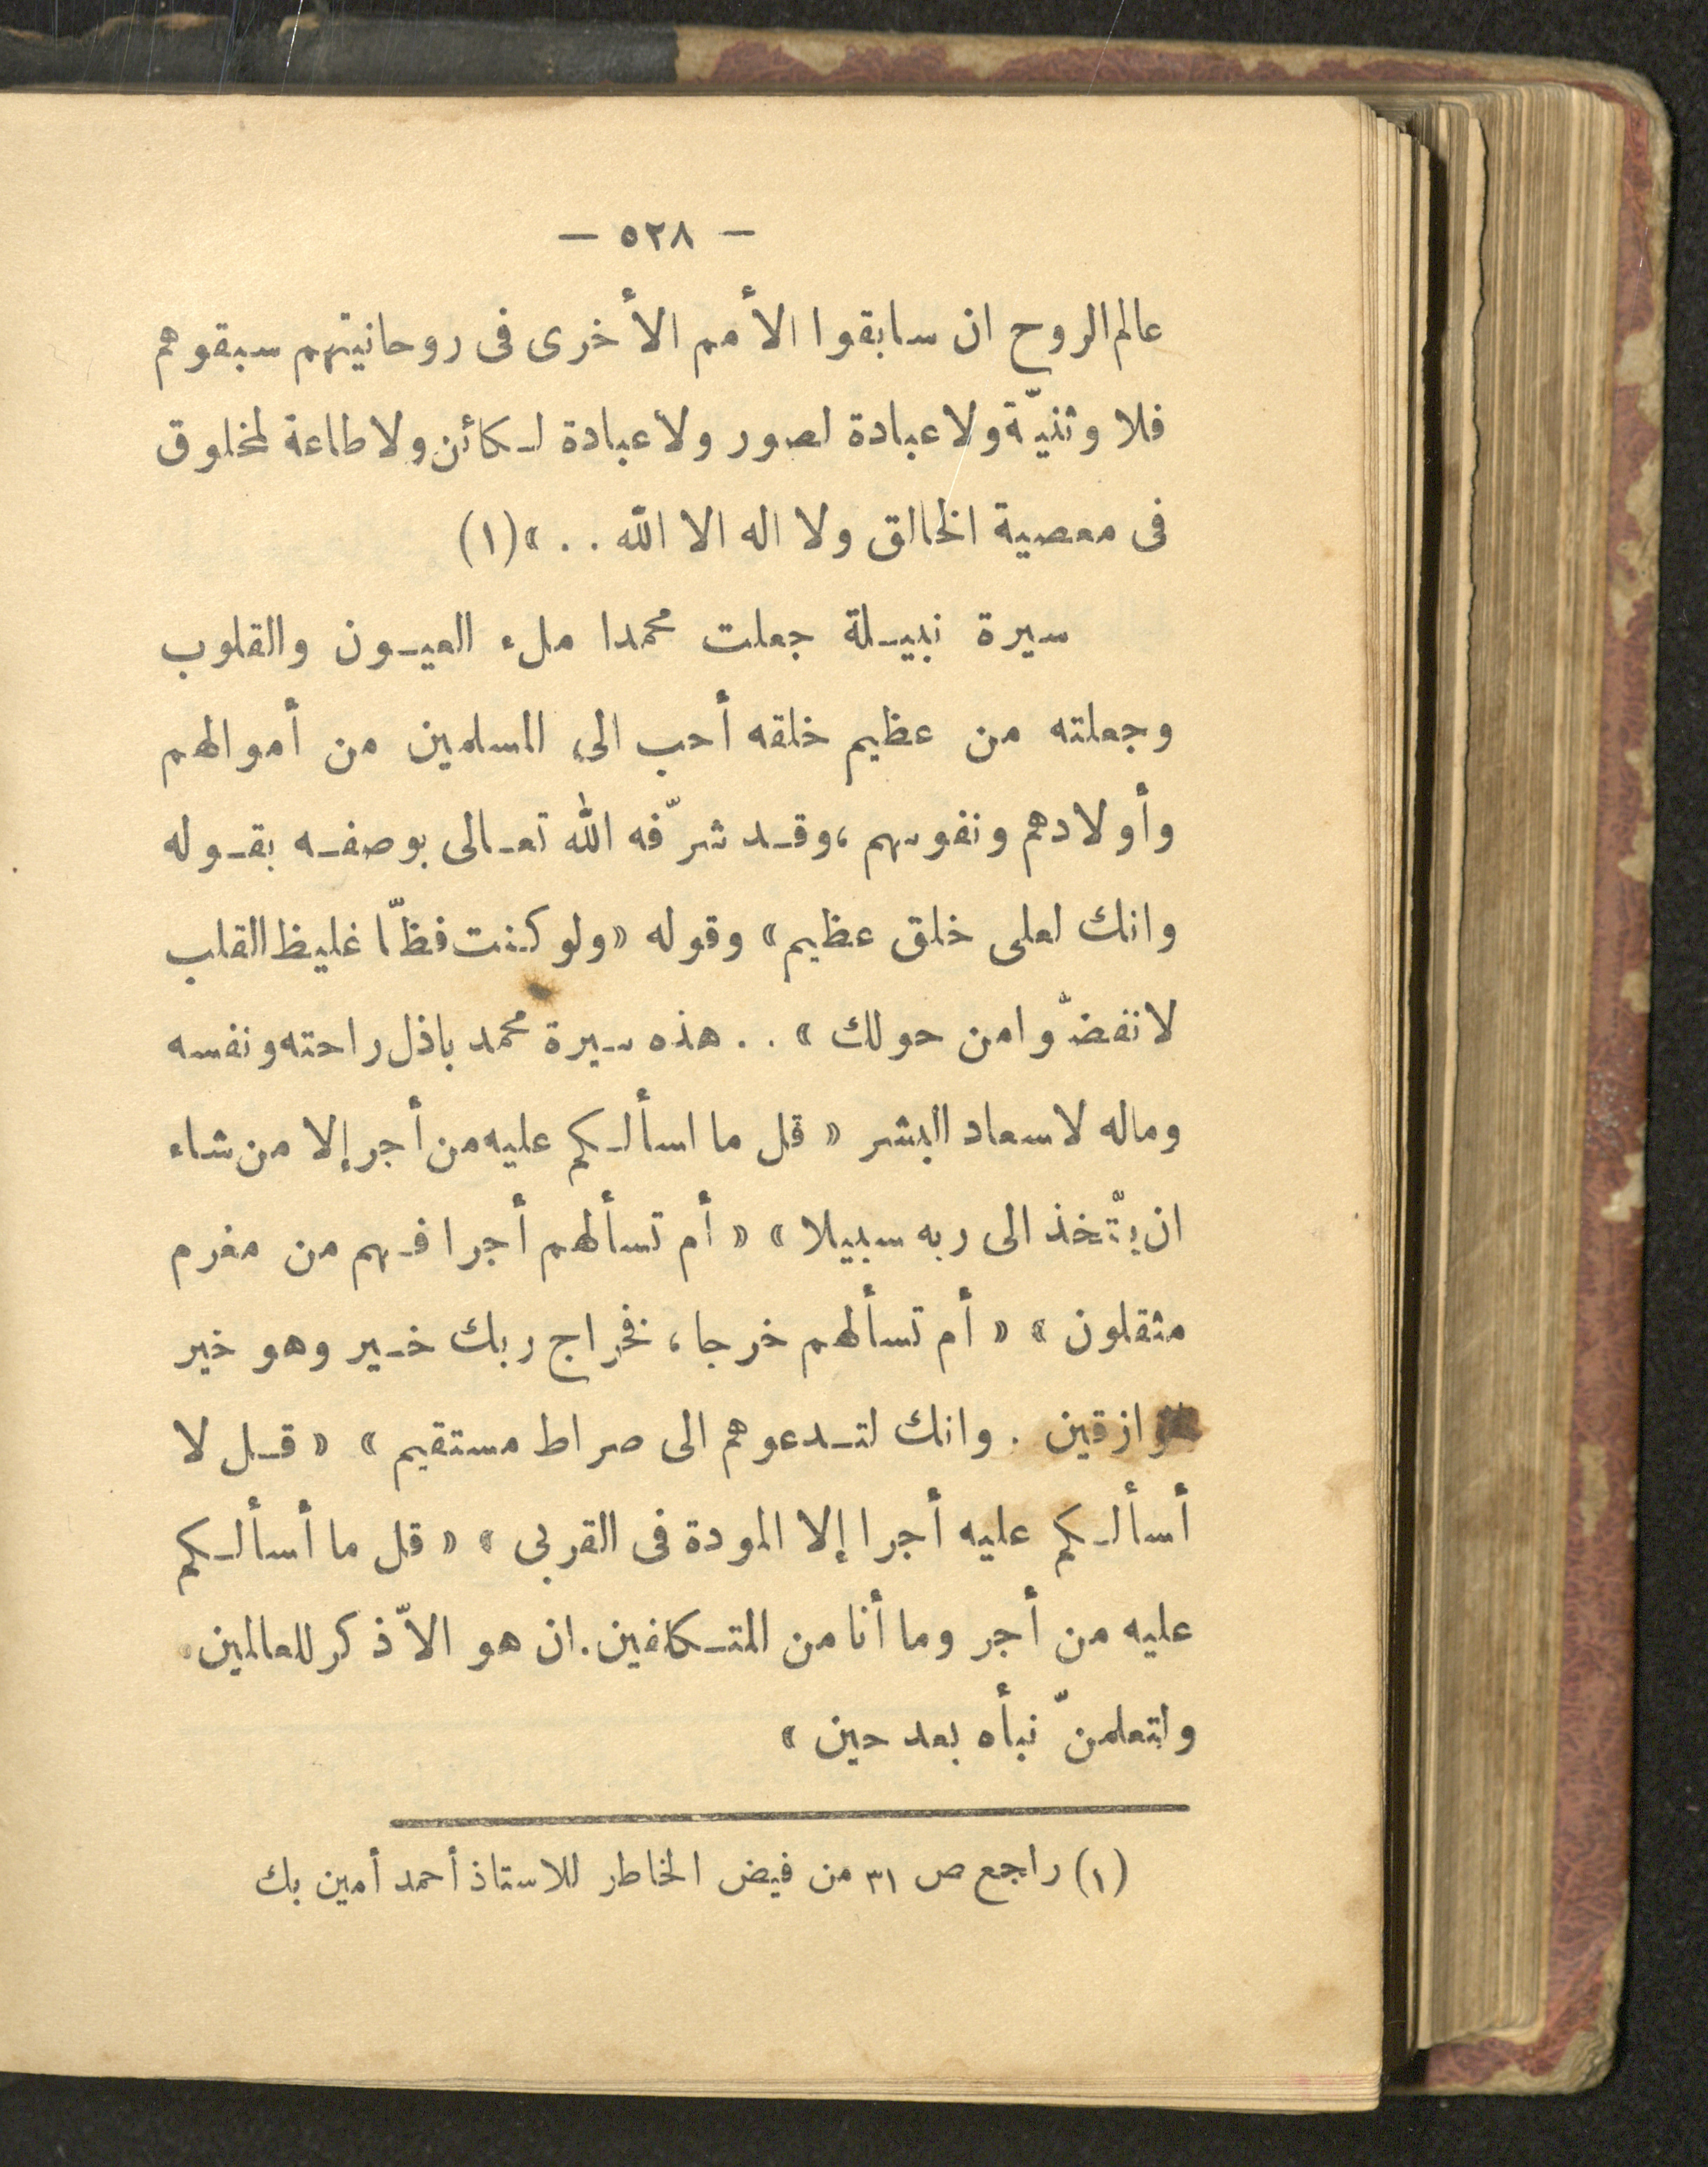 — ٥٢٨ —
عالم الروح ان سابقوا الأمم الأخرى فى روحانيتهم سبقوهم
فلا وثنيّة ولا عبادة لصور ولا عبادة لـكائن ولا طاعة لمخلوق
فى معصية الخالق ولا اله الا الله . . » (١)
سيرة نبيـلة جعلت محمدا ملء العيـون والقلوب
وجعلته من عظيم خلقه أحب الى المسلمين من أموالهم
وأولادهم ونفوسهم ، وقـد شرّفه الله تعـالى بوصفـه بقـوله
وانك لعلى خلق عظيم » وقوله « ولو كنت فظّا غليظ القلب
لانفضّوا من حولك » . . هذه سيرة محمد باذل راحته ونفسه
وماله لاسعاد البشر « قل ما اسألـكم عليه من أجر إلا من شاء
ان يتّخذ الى ربه سبيلا » « أم تسألهم أجرا فـهم من مغرم
مثقلون » « أم تسألهم خرجا ، فخراج ربك خـير وهو خير
الرازقين . وانك لتـدعوهم الى صراط مستقيم » « قـل لا
أسألـكم عليه أجرا إلا المودة فى القربى » « قل ما أسألـكم
عليه من أجر وما أنا من المتـكلفين . ان هو الاّ ذكر للعالمين .
ولتعلمنّ نبأه بعد حين »
(١) راجع ص ٣١ من فيض الخاطر للاستاذ أحمد أمين بك